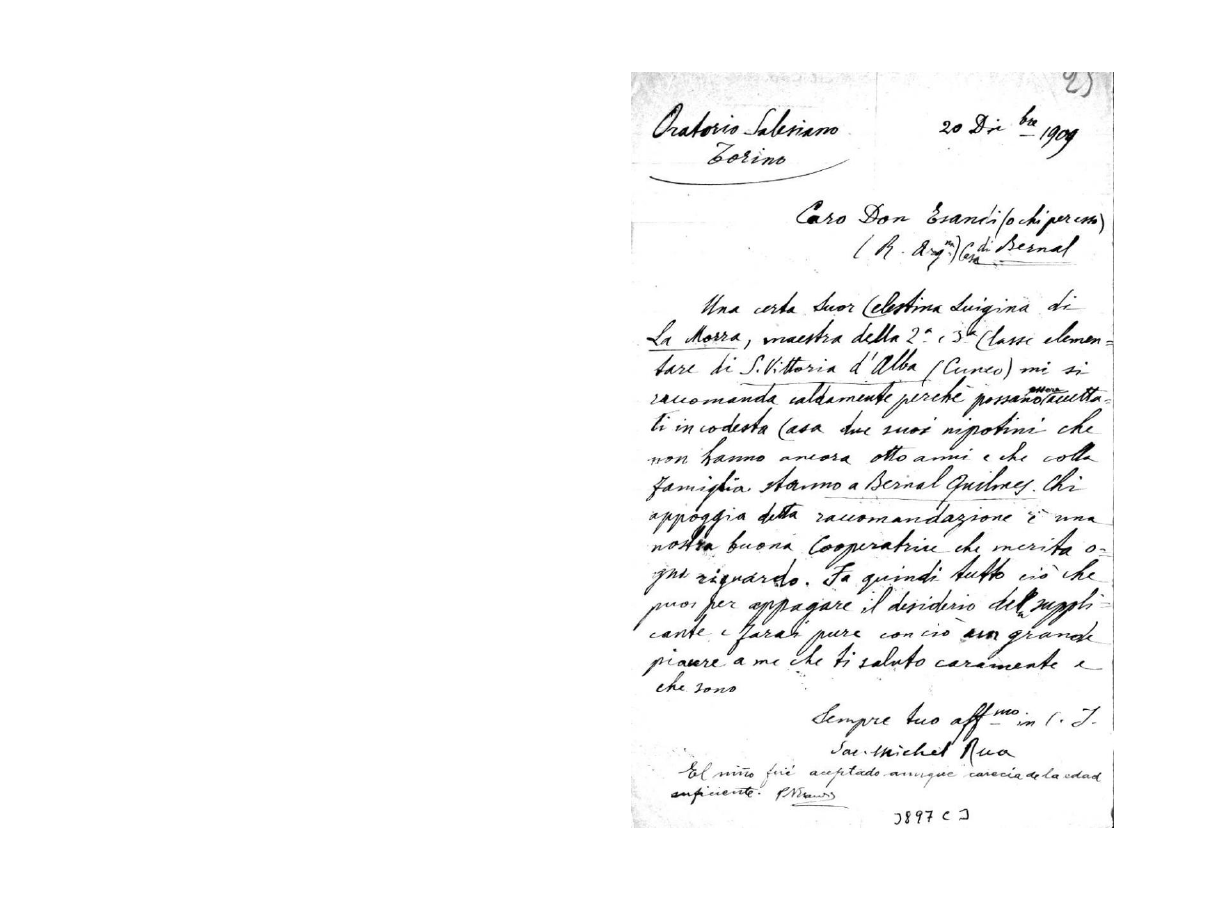 25
Oratorio Salesiano 20 Dic bre 1909
Torino
Caro Don Esandi (o chi per esso)
(R. Arg.na) Casa di Bernal
Una certa Suor Celestina Luigina di
La Morra, maestra della 2ª e 3ª Classe elemen=
tare di S. Vittoria d'Alba (Cuneo) mi si
raccomanda caldamente perchè possano essere accetta=
ti in codesta Casa due suoi nipotini che
non hanno ancora otto anni e che colla
famiglia stanno a Bernal Quilmes. Chi
appoggia detta raccomandazione è una
nostra buona Cooperatrice che merita o=
gni riguardo. Fa quindi tutto ciò che
puoi per appagare il desiderio della suppli=
cante e farai pure con ciò un grande
piacere a me che ti saluto caramente e
che sono
Sempre tuo aff.mo in C. J.
Sac. Michel Rua
El niño fué aceptado aunque carecia de la edad
suficiente.
3897 C 3